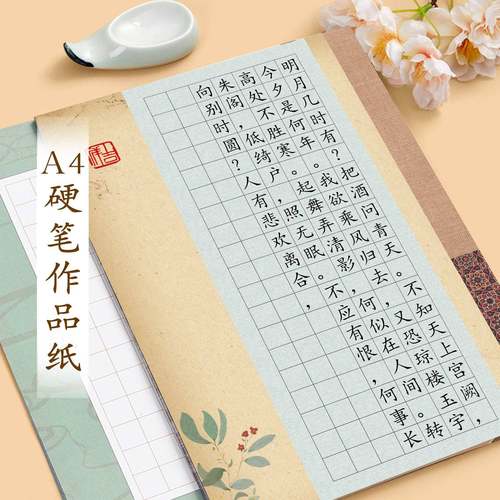 A4硬笔作品纸
明月几时有？把酒问青天。不知天上宫阙，
今夕是何年。我欲乘风归去，又恐琼楼玉宇，
高处不胜寒。起舞弄清影，何似在人间。转
朱阁，低绮户，照无眠。不应有恨，何事长
向别时圆？人有悲欢离合，